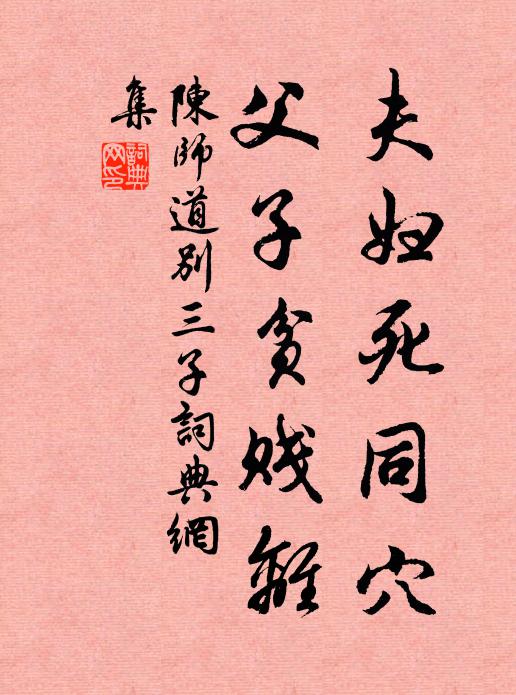 夫妇死同穴
父子贫贱離
陳師道别三子詞典網
集
詞典網印